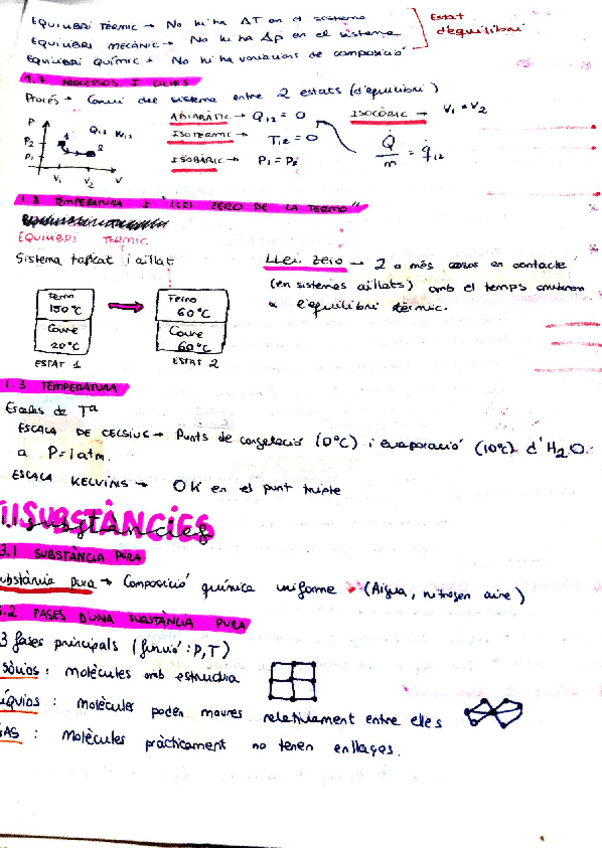 EQUILIBRI TÈRMIC → No hi ha ΔT en el sistema
EQUILIBRI MECÀNIC → No hi ha Δp en el sistema
EQUILIBRI QUÍMIC → No hi ha variacions de composició
Estat d'equilibri
1.7 PROCESSOS I CICLES
Procés → Canvi del sistema entre 2 estats (d'equilibri)
P
P2
P1
1
2
Q12 W12
V1
V2
V
ADIABÀTIC → Q12 = 0
ISOTERMIC → T12 = 0
ISOBÀRIC → P1 = P2
ISOCÒRIC → V1 = V2
Q̇/m = q12
1.8 TEMPERATURA I "LLEI ZERO DE LA TERMO"
EQUILIBRI TÈRMIC
Sistema tancat i aïllat
Ferro
150°C
Coure
20°C
ESTAT 1
Ferro
60°C
Coure
60°C
ESTAT 2
LLEI ZERO → 2 o més cossos en contacte
(en sistemes aïllats) amb el temps
a l'equilibri tèrmic.
1.3 TEMPERATURA
Escales de Tª
ESCALA DE CELSIUS → Punts de congelació (0°C) i evaporació (10°C) d'H2O.
a P=1atm.
ESCALA KELVINS → 0K en el punt triple
SUBSTÀNCIES
substàncies
3.1 SUBSTÀNCIA PURA
ubstància pura → Composició química uniforme (Aigua, nitrogen aire)
.2 FASES D'UNA SUBSTÀNCIA PURA
3 fases principals (funció: P, T)
SÒLIDS : molècules amb estructura
ÍQUIDS : molècules poden moures relativament entre elles
GAS : molècules pràcticament no tenen enllaços.